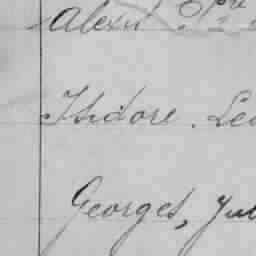 Alexd
Isidore. Leo
Georges, Jul